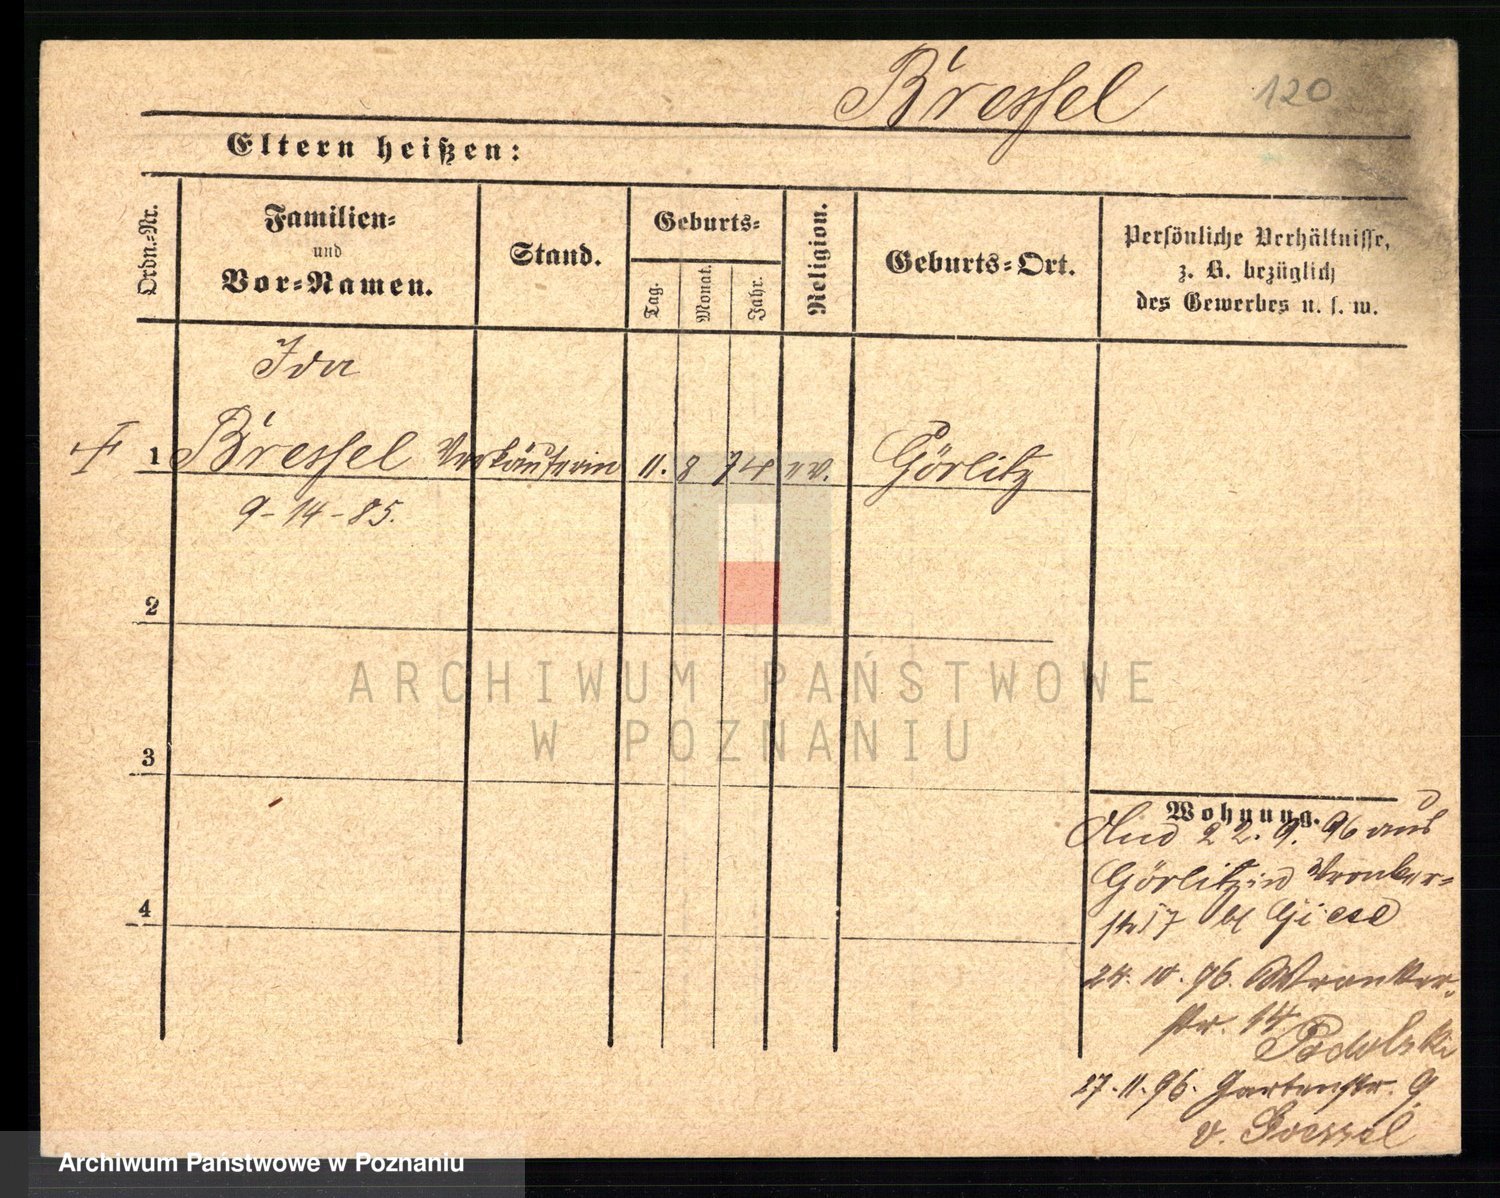 Bressel
120
Eltern heißen:
Ordn.-Nr.
Familien-
und
Vor-Namen.
Stand.
Geburts-
Tag.
Monat.
Jahr.
Religion.
Geburts-Ort.
Persönliche Verhältnisse,
z. B. bezüglich
des Gewerbes u. s. w.
Ida
1 Bressel Verkäuferin 11. 8 74 ev. Görlitz
9-14-85.
2
3
4
ARCHIWUM PAŃSTWOWE
W POZNANIU
Wohnung.
22. 9. 96 aus
Görlitz in Wronker-
str 17 bei Giese
24. 10. 96. Wronker-
str. 14
Podolski
27. 11. 96. Gartenstr. 9
v.
Archiwum Państwowe w Poznaniu